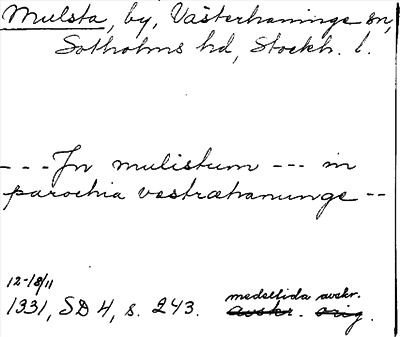 Mulsta, by, Västerhaninge sn,
Sotholms hd, Stockh. l.
---Jn mulistum --- in
parochia vestræhanunge --
12-18/11
1331, SD 4, s. 243. medeltida avskr.
avskr. orig.